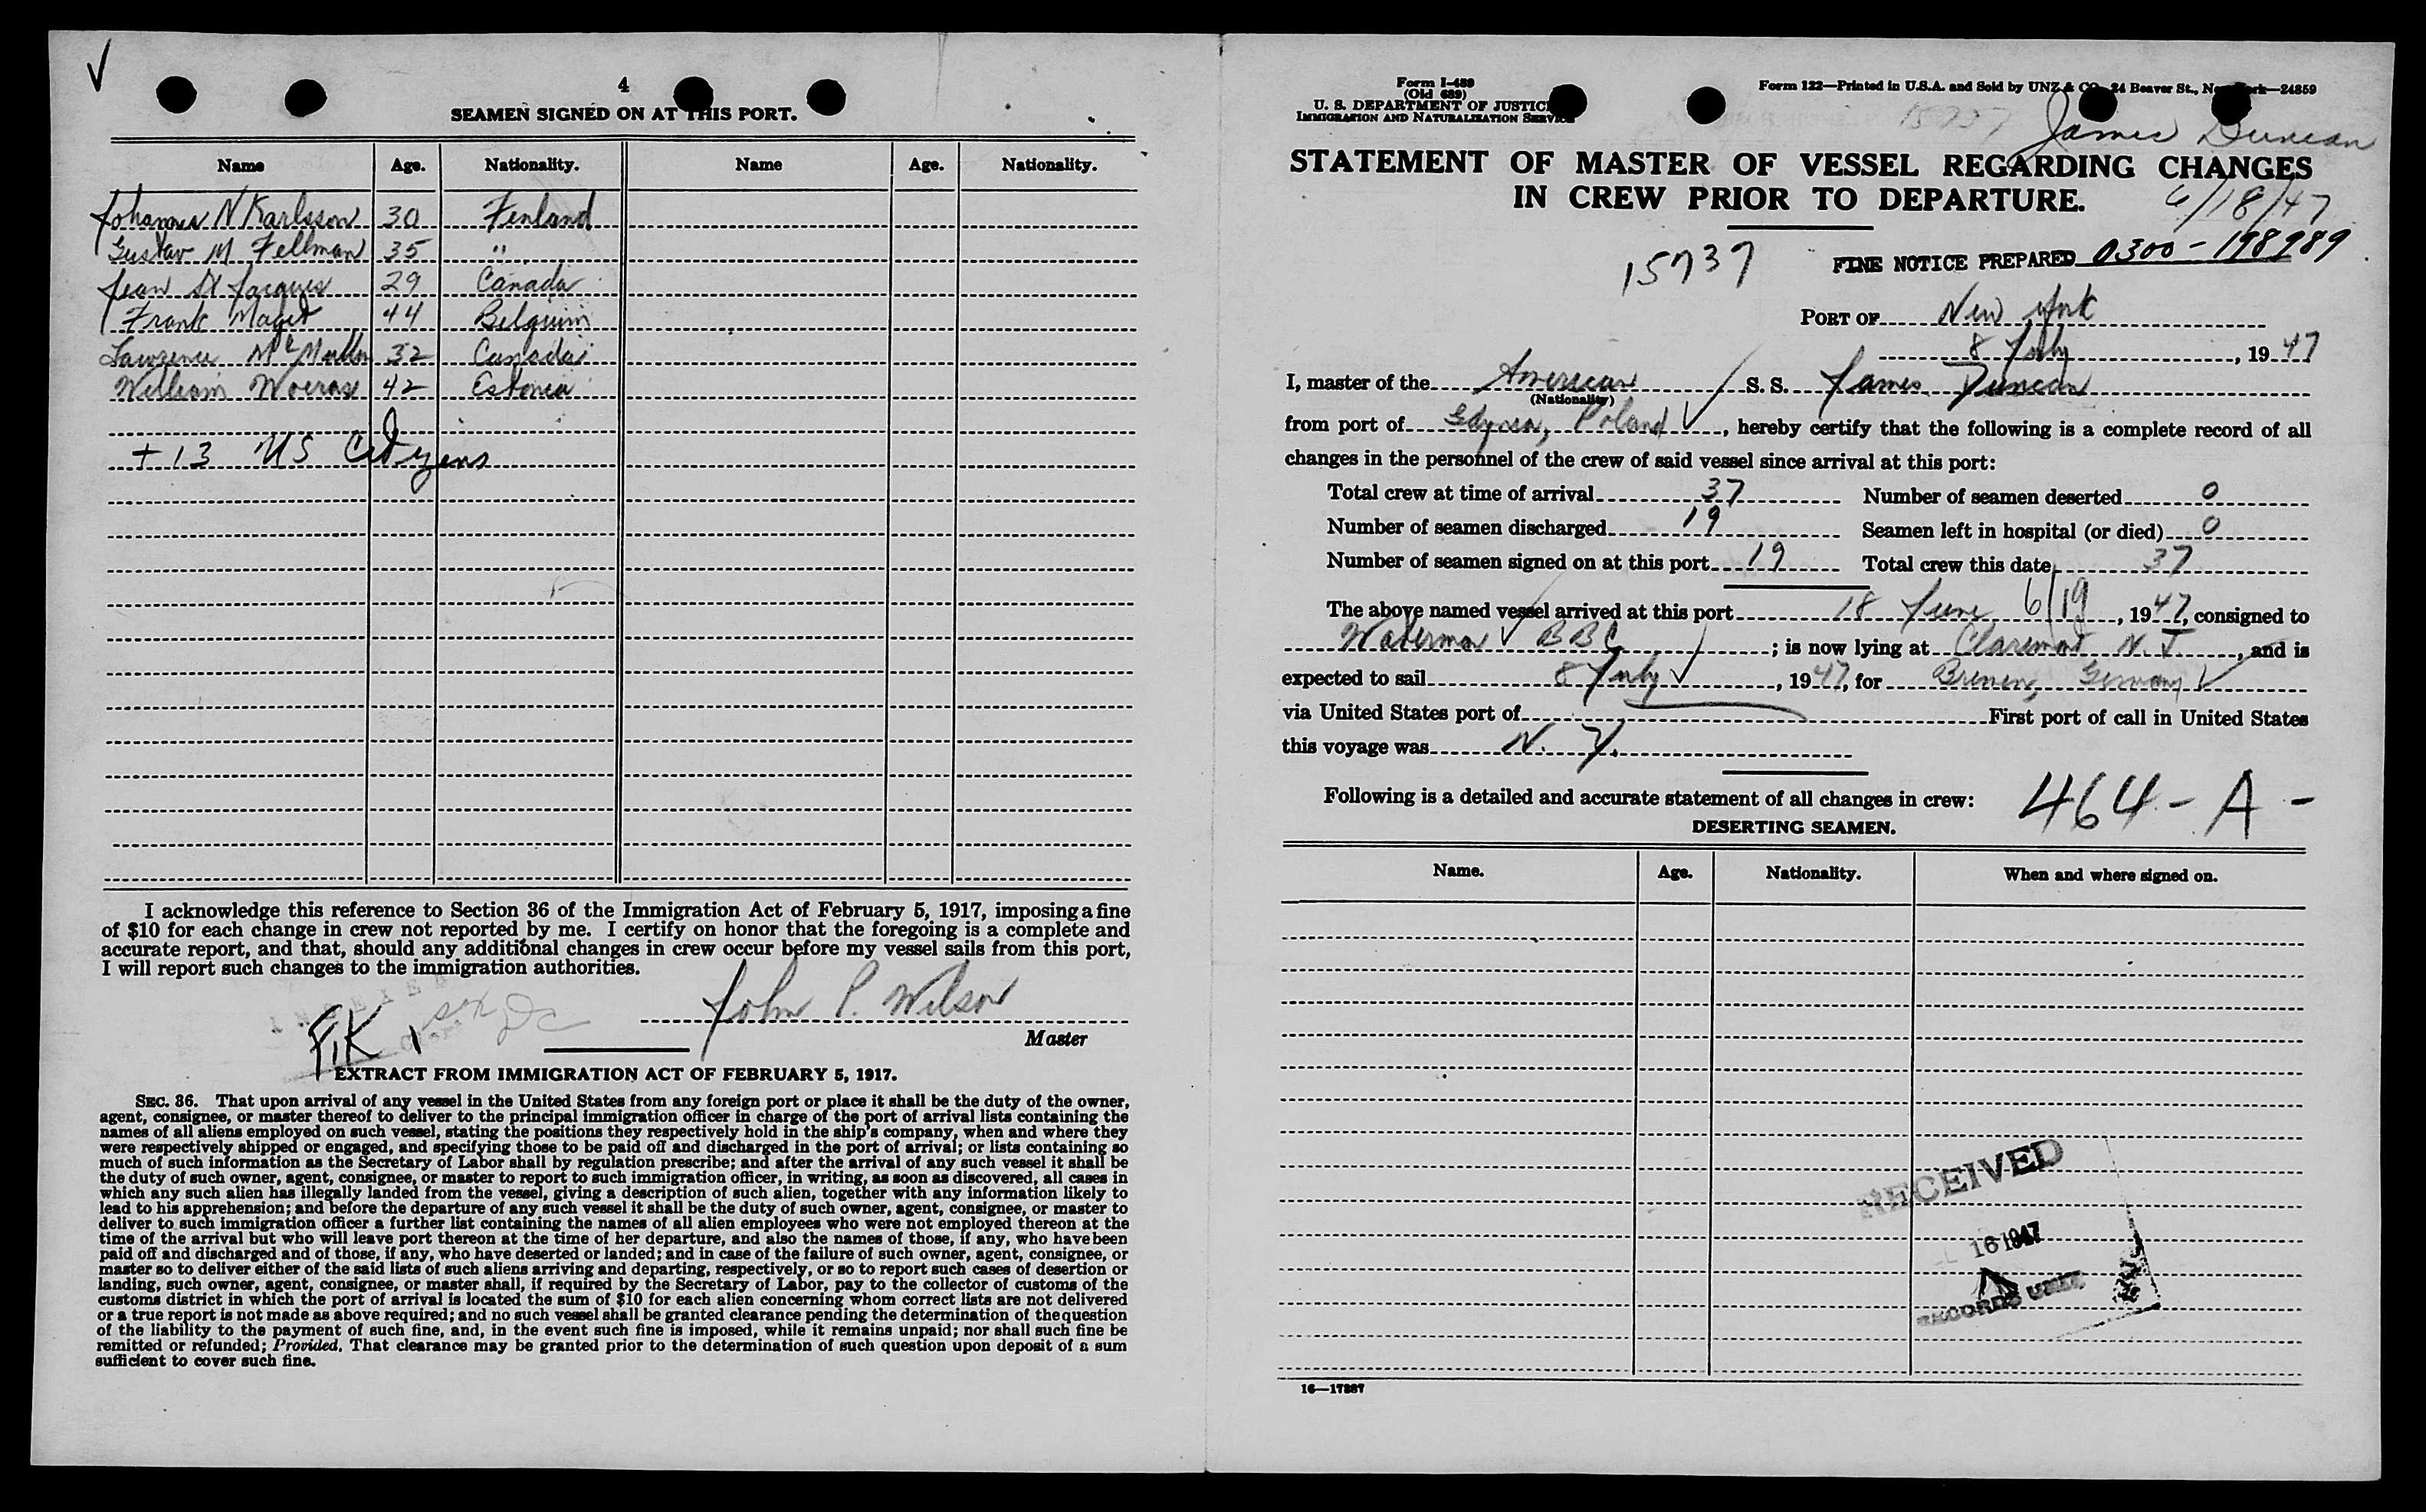 4
SEAMEN SIGNED ON AT THIS PORT.
Name Age. Nationality. Name Age. Nationality.
Johannes N Karlsson 30 Finland
Gustav M Fellman 35 "
Jean St Jacques 29 Canada
Frank 44 Belguim
Lawrence 32 Canada
William 42 Estonia
+ 13 US Citizens
I acknowledge this reference to Section 36 of the Immigration Act of February 5, 1917, imposing a fine
of $10 for each change in crew not reported by me. I certify on honor that the foregoing is a complete and
accurate report, and that, should any additional changes in crew occur before my vessel sails from this port,
I will report such changes to the immigration authorities.
John P. Wilson
Master
EXTRACT FROM IMMIGRATION ACT OF FEBRUARY 5, 1917.
SEC. 36. That upon arrival of any vessel in the United States from any foreign port or place it shall be the duty of the owner,
agent, consignee, or master thereof to deliver to the principal immigration officer in charge of the port of arrival lists containing the
names of all aliens employed on such vessel, stating the positions they respectively hold in the ship's company, when and where they
were respectively shipped or engaged, and specifying those to be paid off and discharged in the port of arrival; or lists containing so
much of such information as the Secretary of Labor shall by regulation prescribe; and after the arrival of any such vessel it shall be
the duty of such owner, agent, consignee, or master to report to such immigration officer, in writing, as soon as discovered, all cases in
which any such alien has illegally landed from the vessel, giving a description of such alien, together with any information likely to
lead to his apprehension; and before the departure of any such vessel it shall be the duty of such owner, agent, consignee, or master to
deliver to such immigration officer a further list containing the names of all alien employees who were not employed thereon at the
time of the arrival but who will leave port thereon at the time of her departure, and also the names of those, if any, who have been
paid off and discharged and of those, if any, who have deserted or landed; and in case of the failure of such owner, agent, consignee, or
master so to deliver either of the said lists of such aliens arriving and departing, respectively, or so to report such cases of desertion or
landing, such owner, agent, consignee, or master shall, if required by the Secretary of Labor, pay to the collector of customs of the
customs district in which the port of arrival is located the sum of $10 for each alien concerning whom correct lists are not delivered
or a true report is not made as above required; and no such vessel shall be granted clearance pending the determination of the question
of the liability to the payment of such fine, and, in the event such fine is imposed, while it remains unpaid; nor shall such fine be
remitted or refunded; Provided, That clearance may be granted prior to the determination of such question upon deposit of a sum
sufficient to cover such fine.
Form I-489
(Old 689)
U. S. DEPARTMENT OF JUSTICE
IMMIGRATION AND NATURALIZATION SERVICE
Form 122—Printed in U.S.A. and Sold by UNZ & CO., 24 Beaver St., New York—24859
15737 James Duncan
STATEMENT OF MASTER OF VESSEL REGARDING CHANGES
IN CREW PRIOR TO DEPARTURE.
6/18/47
15737 FINE NOTICE PREPARED 0300-198989
PORT OF New York
8 July, 1947
I, master of the American S. S. James Duncan
(Nationality)
from port of Gdynia, Poland, hereby certify that the following is a complete record of all
changes in the personnel of the crew of said vessel since arrival at this port:
Total crew at time of arrival 37 Number of seamen deserted 0
Number of seamen discharged 19 Seamen left in hospital (or died) 0
Number of seamen signed on at this port 19 Total crew this date 37
The above named vessel arrived at this port 18 June 6/19, 1947, consigned to
Waterman BBC; is now lying at Claremont N. J., and is
expected to sail 8 July, 1947, for Bremen, Germany
via United States port of First port of call in United States
this voyage was N. Y.
Following is a detailed and accurate statement of all changes in crew: 464-A-
DESERTING SEAMEN.
Name. Age. Nationality. When and where signed on.
RECEIVED
16 1947
RECORDS UNIT
16—17287